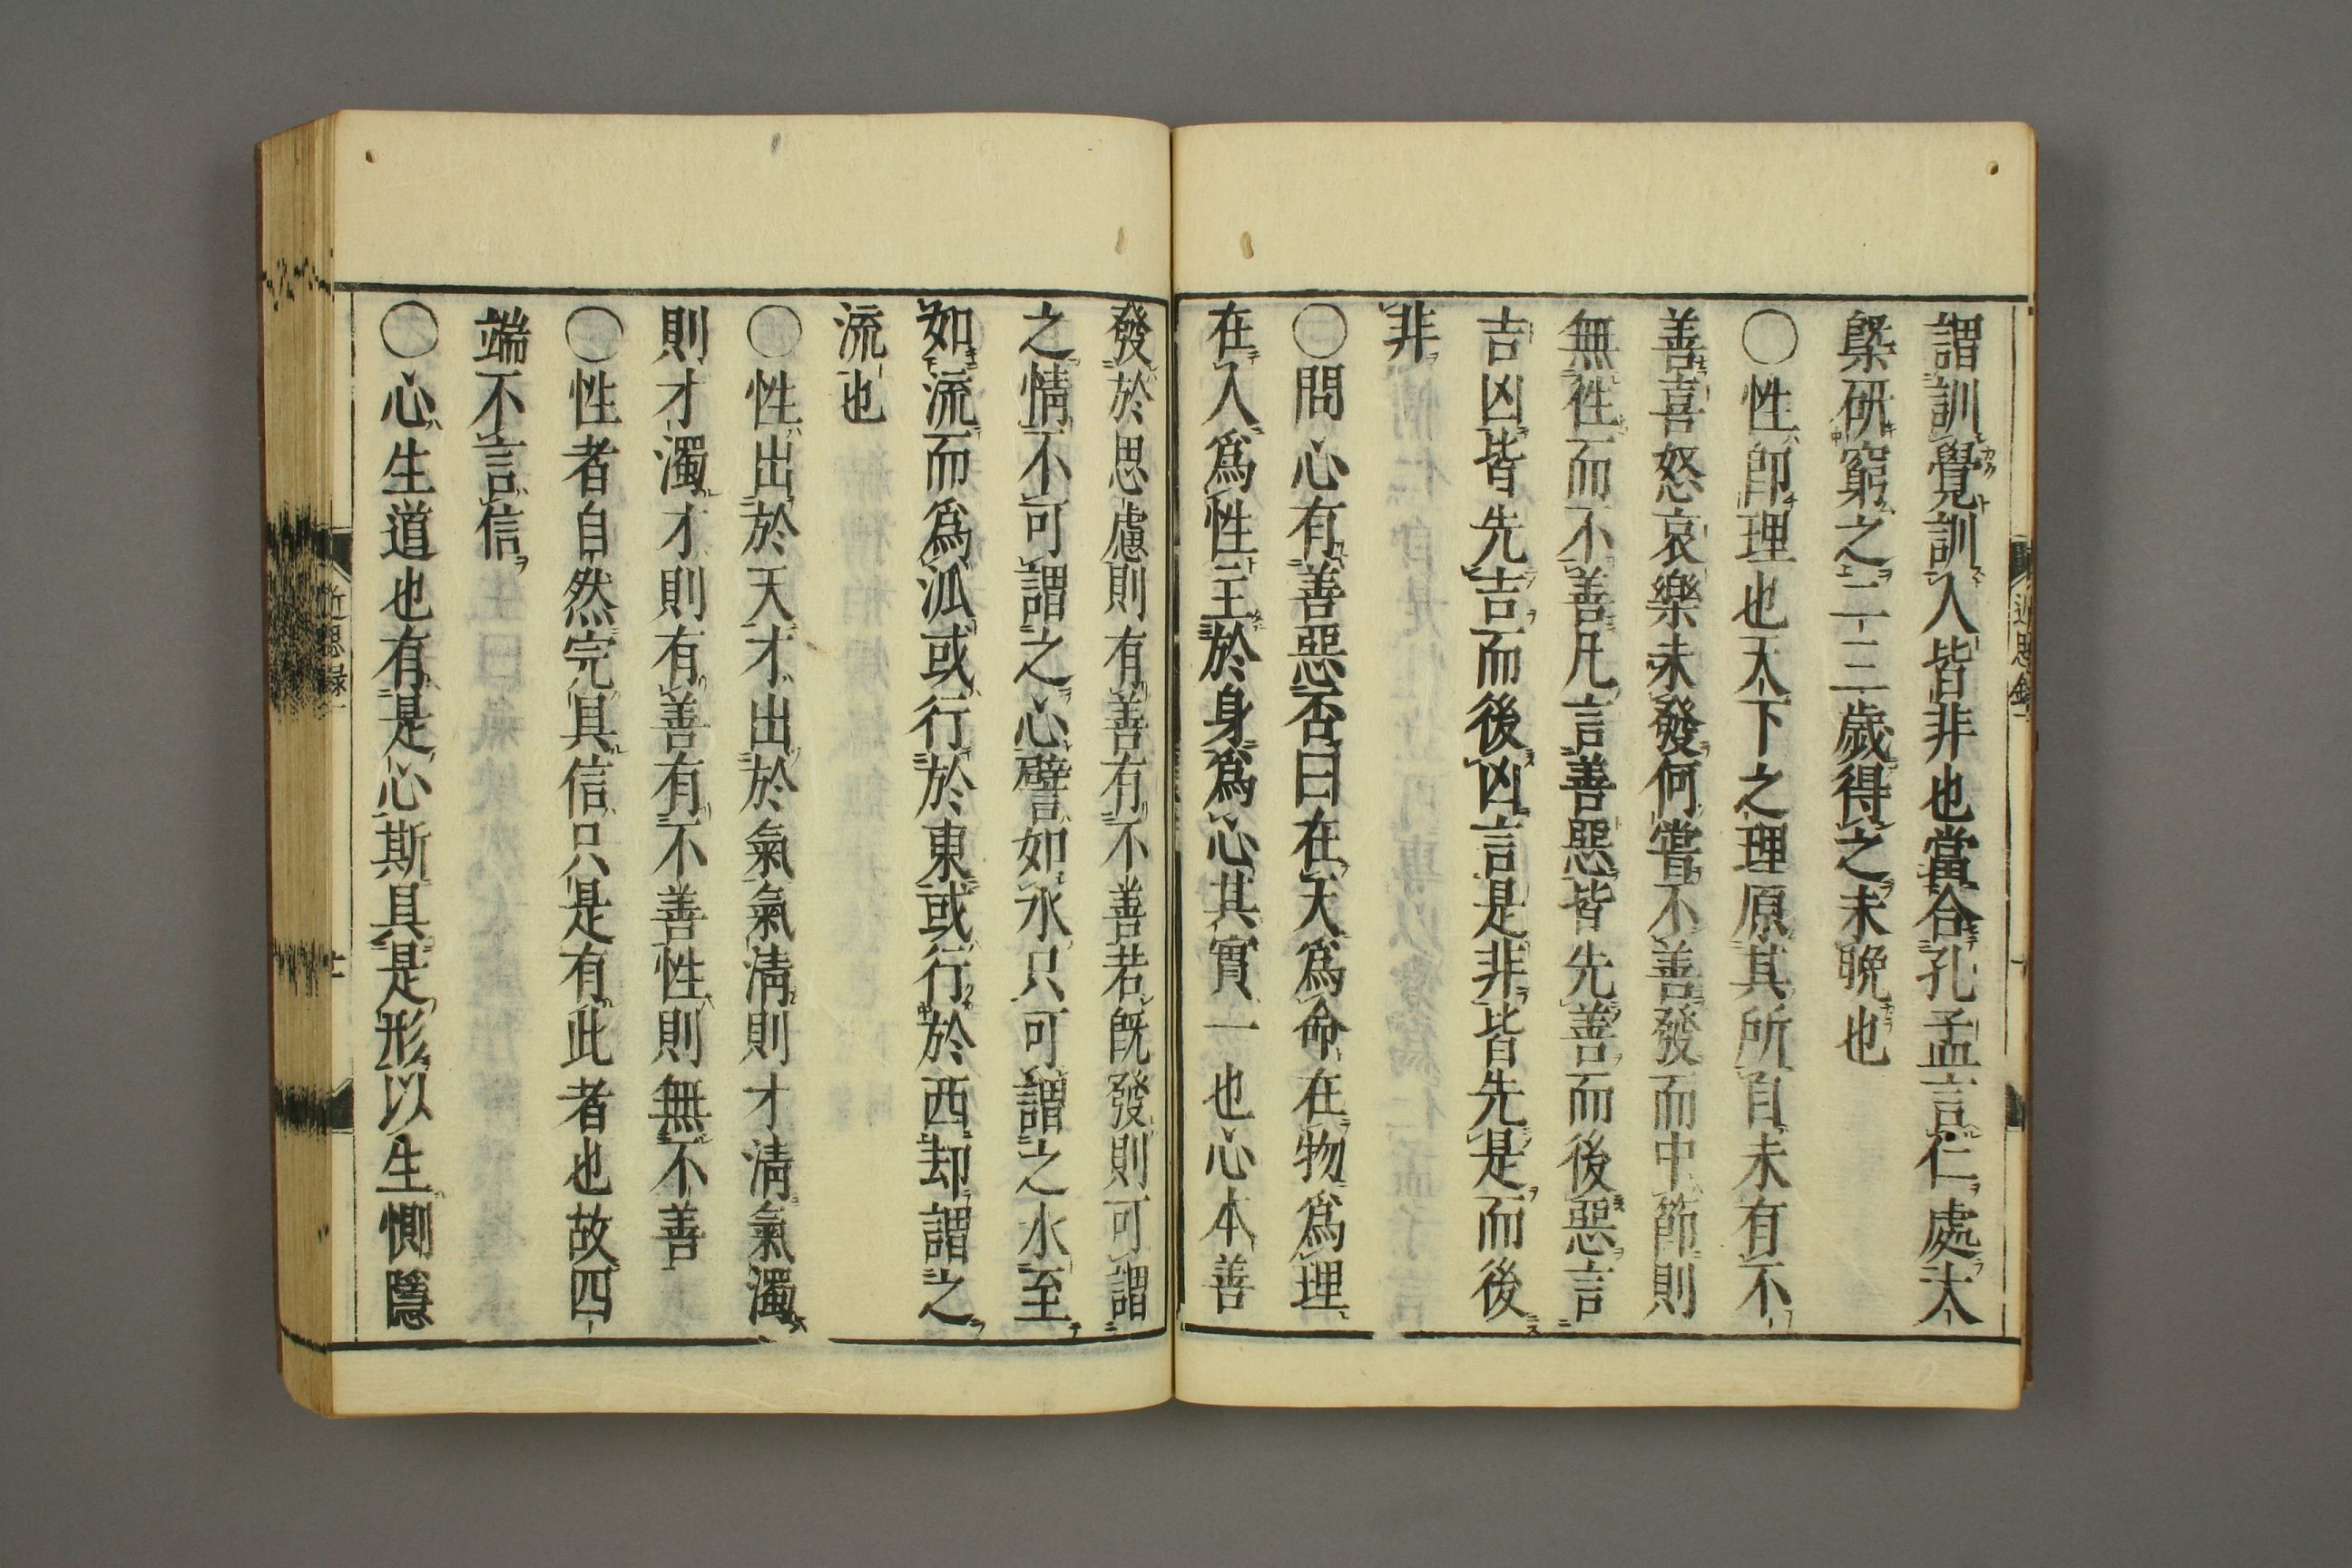 謂訓覺訓人皆非也當合孔孟言仁處大
槩研窮之二三歲得之未晩也
○性卽理也天下之理原其所自未有不
善喜怒哀樂未發何嘗不善發而中節則
無徃而不善凡言善惡皆先善而後惡言
吉凶皆先吉而後凶言是非皆先是而後
非
○問心有善惡否曰在天爲命在物爲理
在人爲性主於身爲心其實一也心本善
發於思慮則有善有不善若旣發則可謂
之情不可謂之心譬如水只可謂之水至
如流而爲派或行於東或行於西却謂之
流也
○性出於天才出於氣氣淸則才淸氣濁
則才濁才則有善有不善性則無不善
○性者自然完具信只是有此者也故四
端不言信
○心生道也有是心斯具是形以生惻隱
近思錄
近思録一